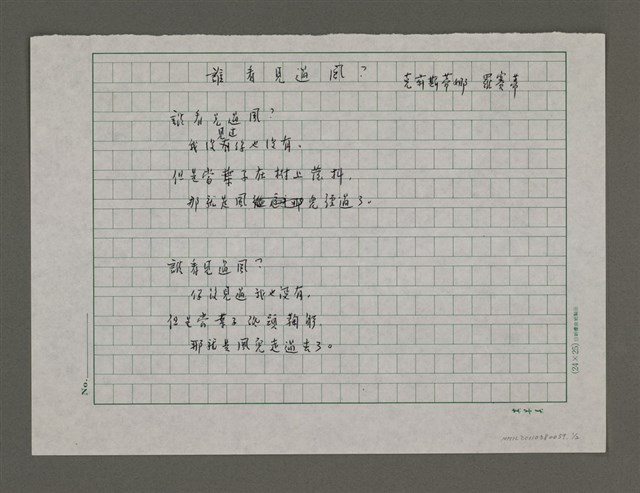 誰看見過風？
克莉斯蒂娜 羅賽蒂
誰看見過風？
見過
我沒有你也沒有。
但是當葉子在樹上發抖，
那就是風兒經過了。
誰看見過風？
你沒見過我也沒有。
但是當葉子低頭鞠躬，
那就是風兒走過去了。
No.
(24×25)